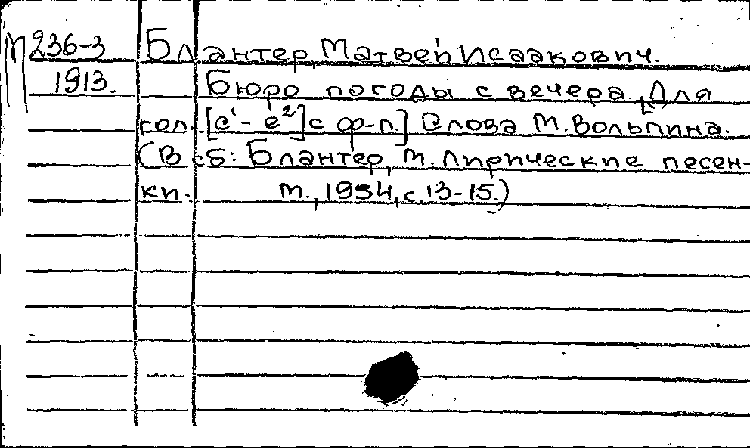 М 236-3 Блантер, Матвей Исаакович.
1913. Бюро погоды с вечера, [Для
гол. [c¹- e²] с ф-п.] Слова М. Вольпина.
(В сб: Блантер, М. Лирические песен-
ки. М., 1954, с. 13-15.)